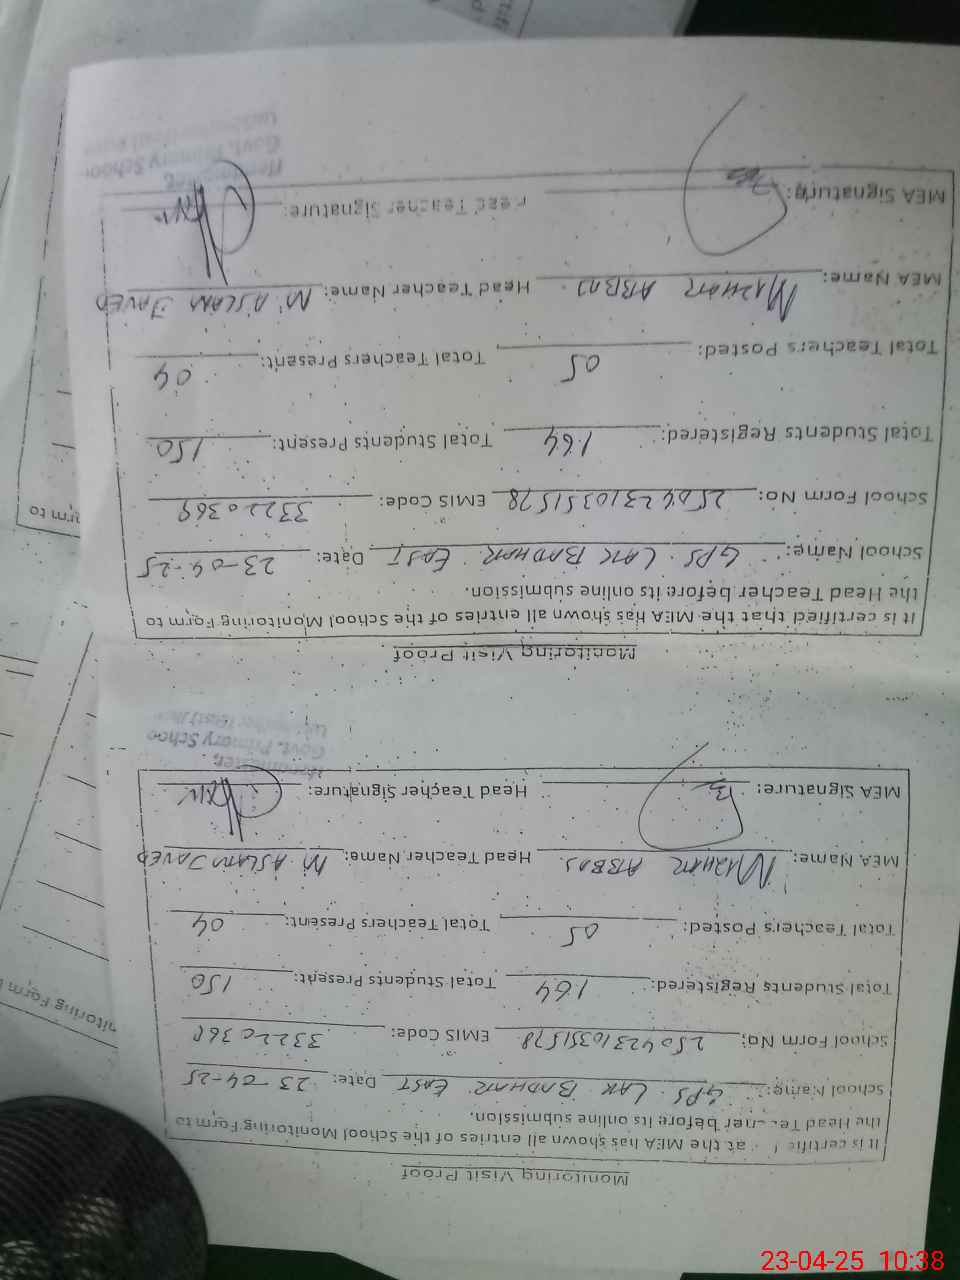 Monitoring Visit Proof
It is certific at the MEA has shown all entries of the School Monitoring Form to
the Head Te her before its online submission.
School Name: GPS. LAK BADHAR EAST Date: 23-04-25
School Form No: 250423103515 78 EMIS Code: 33220369
Total Students Registered: 164 Total Students Present: 150
Total Teachers Posted: 05 Total Teachers Present: 04
MEA Name: MAZHAR ABBAS. Head Teacher Name: M. ASLAM JAVED
MEA Signature: Head Teacher Signature:
Headmaster,
Govt. Primary Schoo
Monitoring Visit Proof
It is certified that the MEA has shown all entries of the School Monitoring Form to
the Head Teacher before its online submission.
School Name: GPS. LAK BADHAR EAST Date: 23-04-25
School Form No: 250423103515 78 EMIS Code: 33220369
Total Students Registered: 164 Total Students Present: 150
Total Teachers Posted: 05 Total Teachers Present: 04
MEA Name: MAZHAR ABBAS. Head Teacher Name: M. ASLAM JAVED
MEA Signature: Head Teacher Signature:
Govt. Primary School
orm to
nitoring Form
23-04-25 10:38